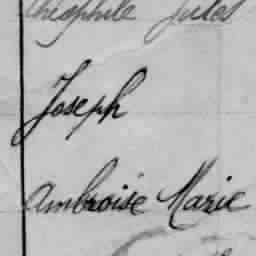 Théophile Jules
Joseph
Ambroise Marie